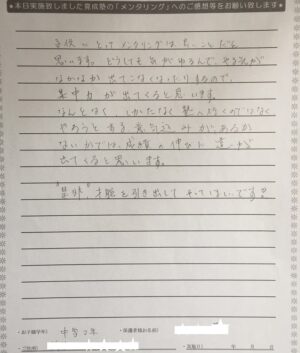 ★本日実施致しました育成塾の「メンタリング」へのご感想等をお願い致します★
子供にとってメンタリングは良いことだと
思います。どうしても気がゆるんで、やる気が
なかなか出てこなくなったりするので、
集中力が出てくると思います。
なんとなく、しかたなく塾へ行くのではなく
やろうとする意気込みがあるか
ないかでは、成績の伸びに違いが
出てくると思います。
是非、才能を引き出してやってほしいです!
・お子様学年)
中学2年
・保護者様お名前)
・ご住所)
・実施日)
年 月 日